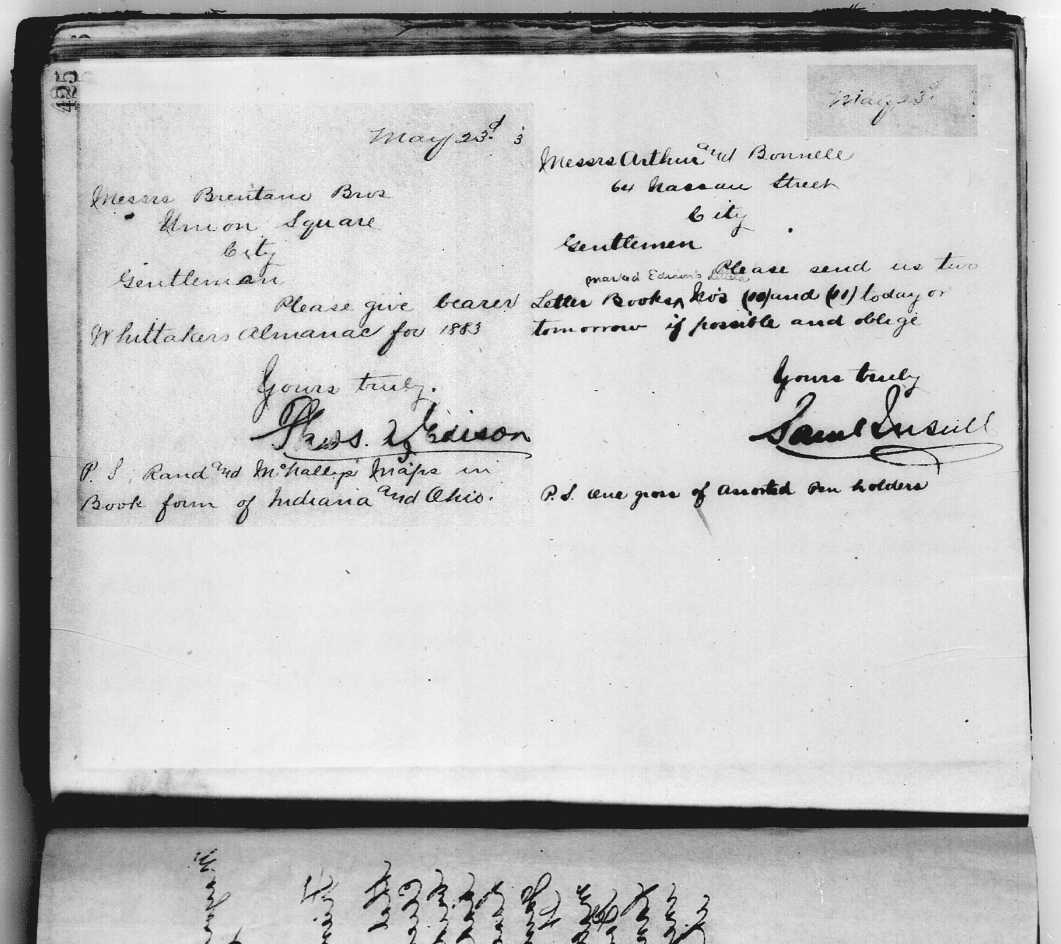 425
May 23d. 3
Messrs Brentano Bros
Union Square
City
Gentleman
Please give bearer
Whittakers Almanac for 1883
Yours truly.
Thos. A Edison
P. S. Rand and McNallys Maps in
Book form of Indiana and Ohio.
May 23d.
Messrs Arthur and Bonnell
64 Nassau Street
City
Gentlemen
Please send us two
marked Edison's Letters
Letter Books, No's and today or
tomorrow if possible and oblige
Yours truly
Saml Insull
P.S. One gross of assorted Pen holders